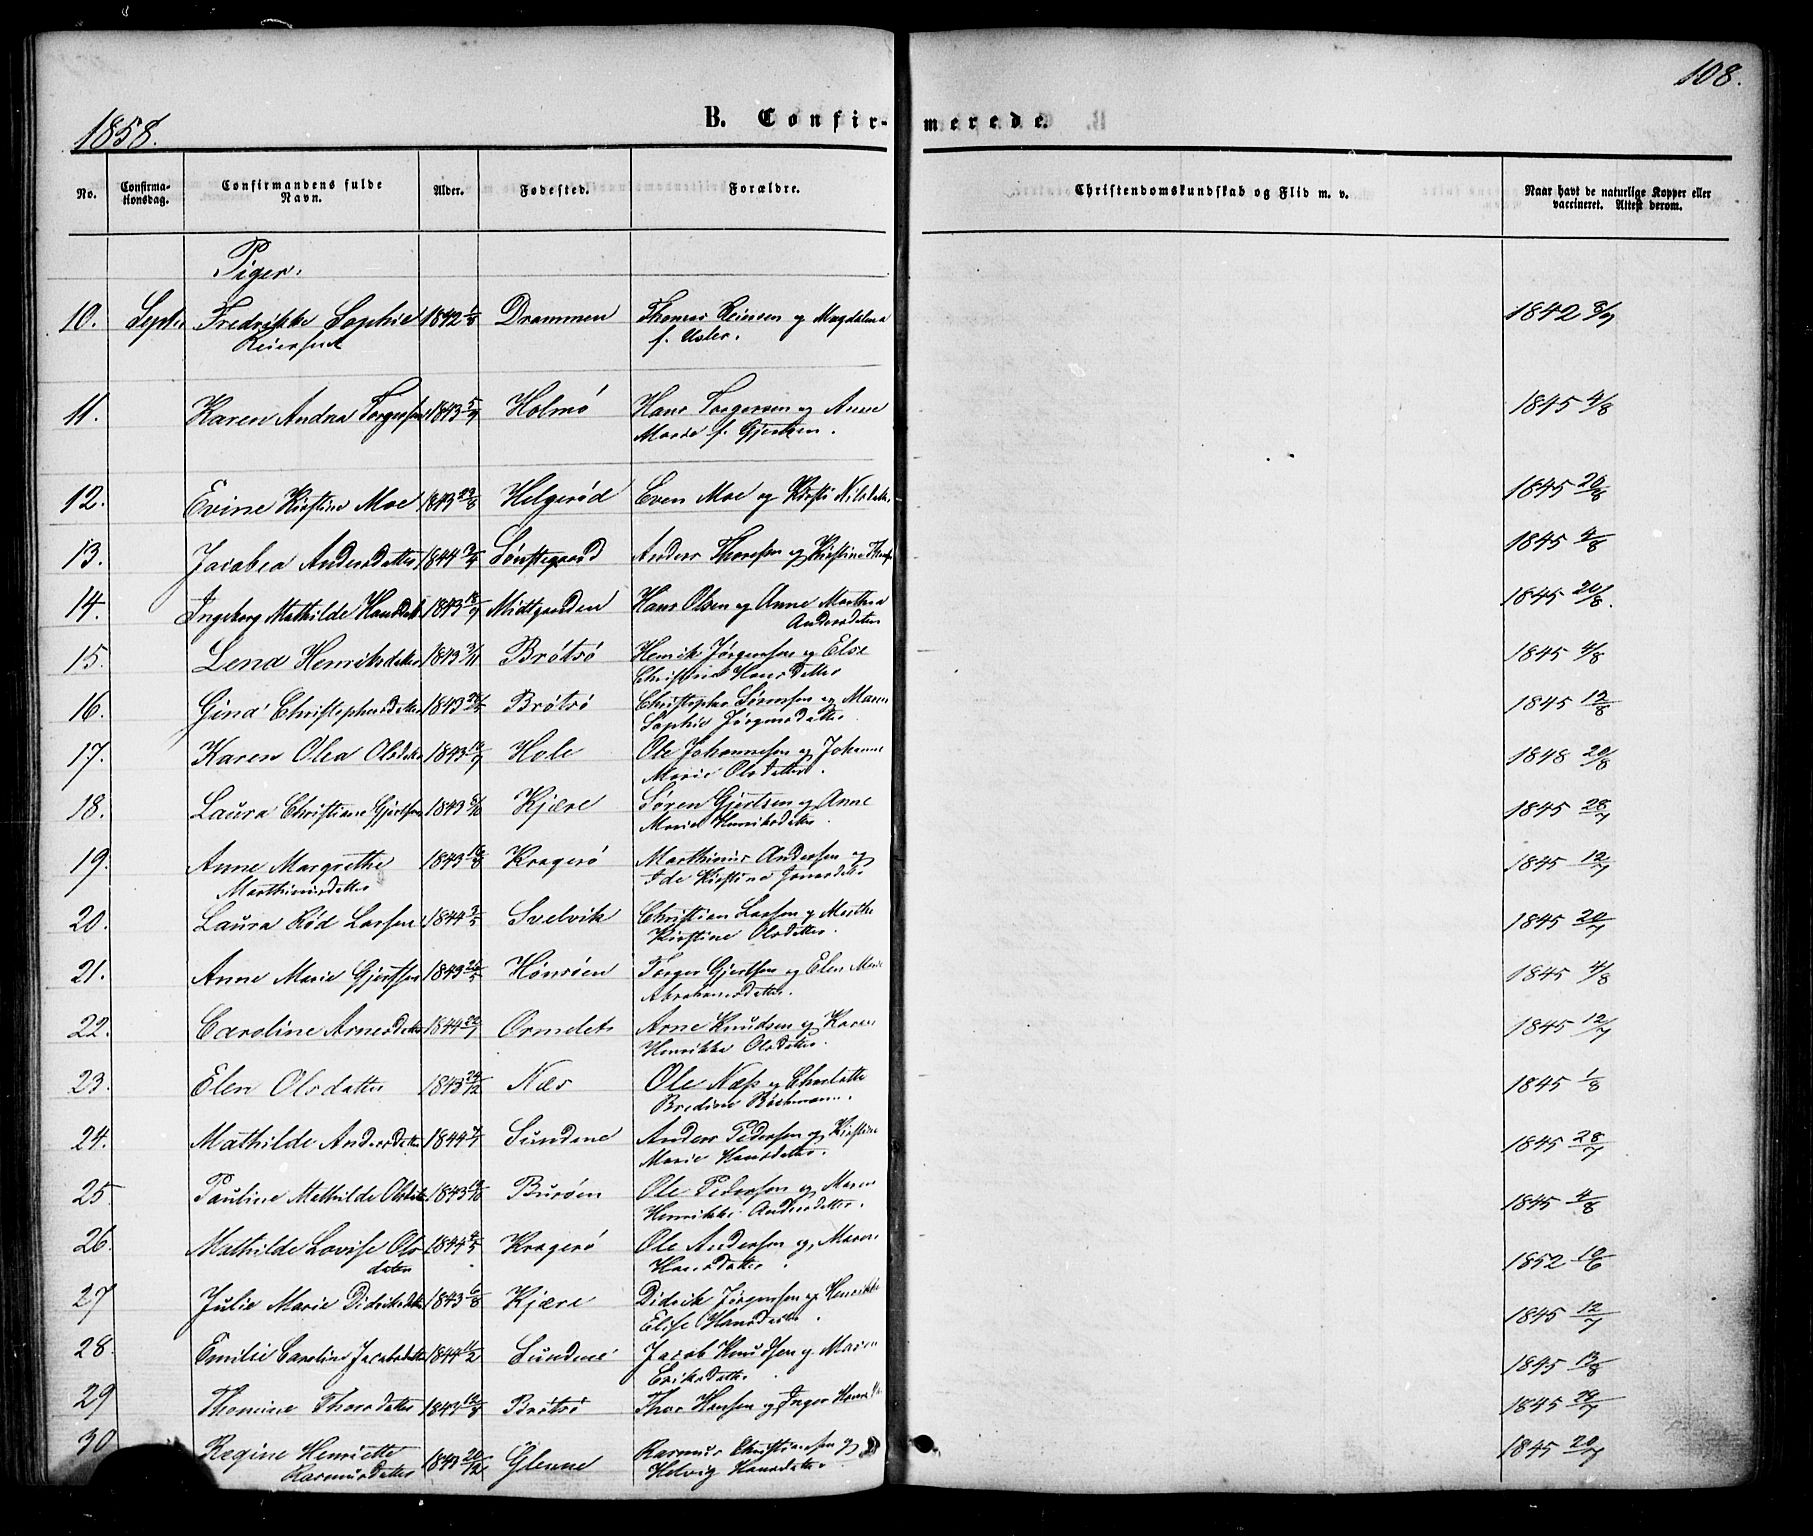 108.
1858.
B. Confir- merede.
No. Confirma-tionsdag. Confirmandens fulde Navn. Alder. Fødested. Forældre. Christendomskundskab og Flid m. v. Naar havt de naturlige Kopper eller vaccineret. Attest derom.
Piger.
10. Sept. Fredrikke Sophie 1842 Drammen Thomas Reiersen og Magdalena 1842
f.
11. Karen Andrea Torgersen 1843 5/9 Holmø Hans Torgersen og Anne 1845 4/8
Marie f. Gjertsen.
12. Evine Kirstine Moe 1843 Helgerød Even Moe og Kirsti Nilsdatter 1845 20/8
13. Jacobea Andersdatter 1844 Sønstegaard Anders Thoresen og Kirstine 1845 4/8
14. Ingeborg Mathilde Hansdatter 1843 Midtgarden Hans Olsen og Anne Marthea 1845 20/8.
Andersdatter
15. Lena Henriksdatter 1843 Brøtsø Henrik Jørgensen og Else 1845 4/8
Christine Hansdatter
16. Gina Christophersdatter 1843 Brøtsø Christopher Sørensen og Maren 1845 12/8
Sophie Jørgensdatter
17. Karen Olea Olsdatter 1843 Hole Ole Johannesen og Johanne 1848 20/8
Marie Olsdatter.
18. Laura Christiane Gjertsen 1843 Kjære Søren Gjertsen og Anne 1845 28/7
Marie Henriksdatter.
19. Anne Margrethe 1843 Kragerø Marthinius Andersen og 1845 12/7
Marthiniusdatter Ide Kirstine
20. Laura Rød Larsen 1844 Svelvik Christian Larsen og Marthe 1845 20/7
Kirstine Olsdatter.
21. Anne Marie Gjertsen 1843 Hønsøen Torger Gjertsen og Elen Marie 1845 4/8
Abrahamsdatter.
22. Caroline Arnesdatter 1844 Ormelet Arne Knudsen og Karen 1845 12/7
Henrikke Olsdatter.
23. Elen Olsdatter 1843 24/12 Næs Ole Næss og Charlotte 1845 1/8
Bredine
24. Mathilde Andersdatter 1844 Sundene Anders Pedersen og Kirstine 1845 28/7
Marie Hansdatter.
25. Pauline Mathilde Olsdatter 1843 Burøen Ole Pedersen og Maren 1845 4/8
Henrikke Andersdatter.
26. Mathilde Lovise Ols- 1844 Kragerø Ole Andersen og Maren 1852 10/6
datter Hansdatter.
27 Julie Marie Didriksdatter 1843 6/8 Kjære Didrik Jørgensen og Henrikke 1845 12/7
Elise Hansdatter.
28. Emilie Caroline Jacobsdatter 1844 Sundene Jacob Knudsen og Maren 1845 13/8
Eriksdatter.
29 Thomine Thorsdatter 1843 Brøtsø Thor Hansen og Inger 1845 28/7
30 Regine Henriette 1843 20/12 Glenne Rasmus Christiansen og 1845 20/7
Rasmusdatter Helvig Hansdatter.